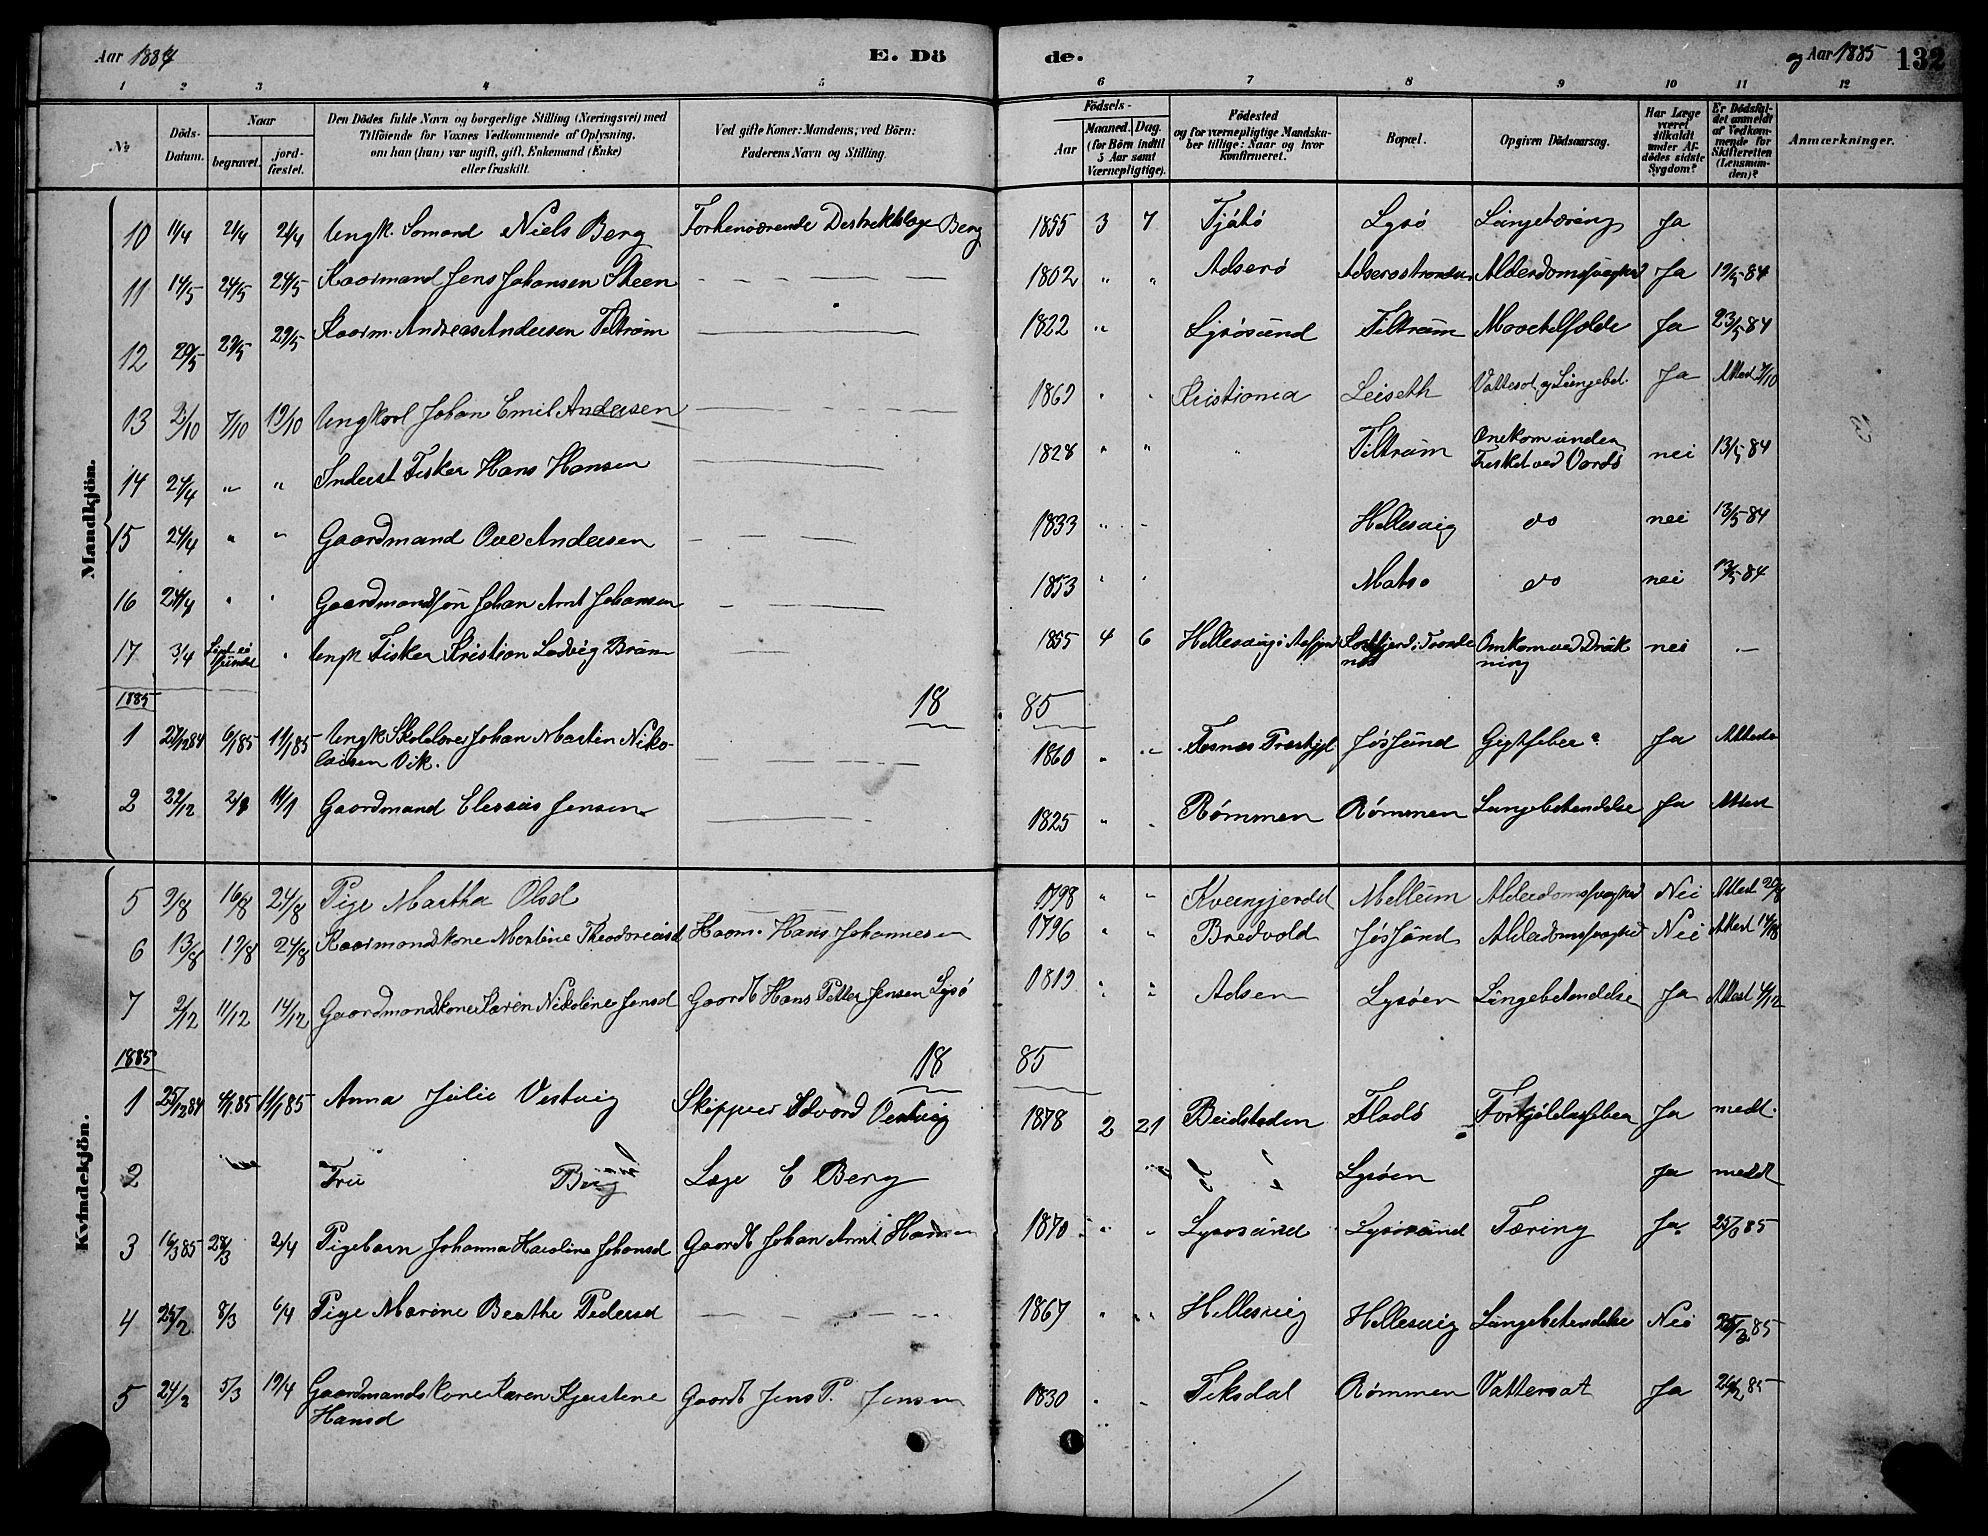 Aar 1884
E. Dö
de.
og Aar 1885
132
1 2 3 4 5 6 7 8 9 10 11 12
No
Döds-Datum.
Naar
begravet.
jord-fæstet.
Den Dödes fulde Navn og borgerlige Stilling (Næringsvei) med
Tilföiende for Voxnes Vedkommende af Oplysning,
om han (hun) var ugift, gift, Enkemand (Enke)
eller fraskilt.
Ved gifte Koner: Mandens; ved Börn:
Faderens Navn og Stilling.
Födsels-
Aar
Maaned. Dag.
(for Börn indtil
5 Aar samt
Værnepligtige).
Födested
og for værnepligtige Mandska-
ber tillige: Naar og hvor
konfirmeret.
Bopæl.
Opgiven Dödsaarsag.
Har Læge
været
tilkaldt
under Af-
dödes sidste
Sygdom?
Er Dödsfal-
det anmeldt
af Vedkom-
mende for
Skifteretten
(Lensman-
den)?
Anmærkninger.
Mandkjön.
10 11/4 21/4 21/4 Ungk. Sømand Niels Berg Forhenværende Destriktslæge Berg 1855 3 7 Tjøtø Lysø Lungetæring Ja
11 14/5 24/5 24/5 Kaarmand Jens Johansen Steen 1802 " " Adserø Adserøstranden Alderdomssvaghed Ja 19/5 84
12 20/5 29/5 29/5 Kaarm. Andreas Andersen Teltrum 1822 " Lysøsund Teltrum Ja 23/5 84
13 2/10 7/10 19/10 Ungkarl Johan Emil Andersen 1869 " " Kristiania Leiseth Vattersot og Lungebet. Ja Attest 7/10
14 24/4 " " Inderst Fisker Hans Hansen 1828 " " " Teltrum Omkom under Fisket ved Vardø nei 13/5 84
15 24/4 " " Gaardmand Ove Andersen 1833 " " Hellesvig do nei 13/5 84
16 24/4 " " Gaardmandssøn Johan Arnt Johansen 1853 " " Matsø do nei 13/5 84
17 3/4 Liget ei funden " Ungk Fisker Kristian Ludvig Brun 1855 4 6 Omkom ved Drukning nei
1885
18 85
1 27/12 84 6/1 85 11/1 85 Ungk Skolelærer Johan Martin Niko-
laisen Vik. 1860 " " Jøssund Gigtfeber Ja Attest
2 22/12 2/1 11/1 Gaardmand Elesæus Jensen 1825 " " Rømmen Rømmen Lungebetendelse Ja Attest
Kvindekjön.
5 9/8 16/8 24/8 Pige Martha Olsd 1798 " " Mellum Alderdomssvaghed Nei Attest 20/8
6 13/8 19/8 24/8 Kaarmandskone Hans Johannesen 1796 " " Bredvold Jøssund Alderdomssvaghed Nei Attest 14/8
7 2/12 11/12 14/12 Gaardmandskone Karen Nikoline Jensd Gaardb Hans Petter Jensen Lysø 1819 " " Adsen Lysøen Lungebetendelse Ja Attest 4/12
1885
18 85
1 25/12 84 4/1 85 11/1 85 Anna Julie Vestvig Skipper Edvard Vestvig 1878 2 21 Beidstaden Fladø Forkjølelsesfeber Ja medt.
2 Fru Berg Læge C Berg Lysøen Ja meddt
3 16/3 85 28/3 2/4 Pigebarn Johanna Karoline Johansd Gaardb Johan Arnt Hansen 1870 " " Lysøsund Lysøsund Tæring Ja 25/3 85
4 25/2 8/3 6/4 Pige Marine Beathe Pedersd 1867 " " Hellesvig Hellesvig Lungebetendelse Nei 85
5 24/2 5/3 19/4 Gaardmandskone Karen Kjerstine
Hansd Gaardb Jens P. Jensen 1830 " " Teksdal Rømmen Vattersot Ja 26/2 85